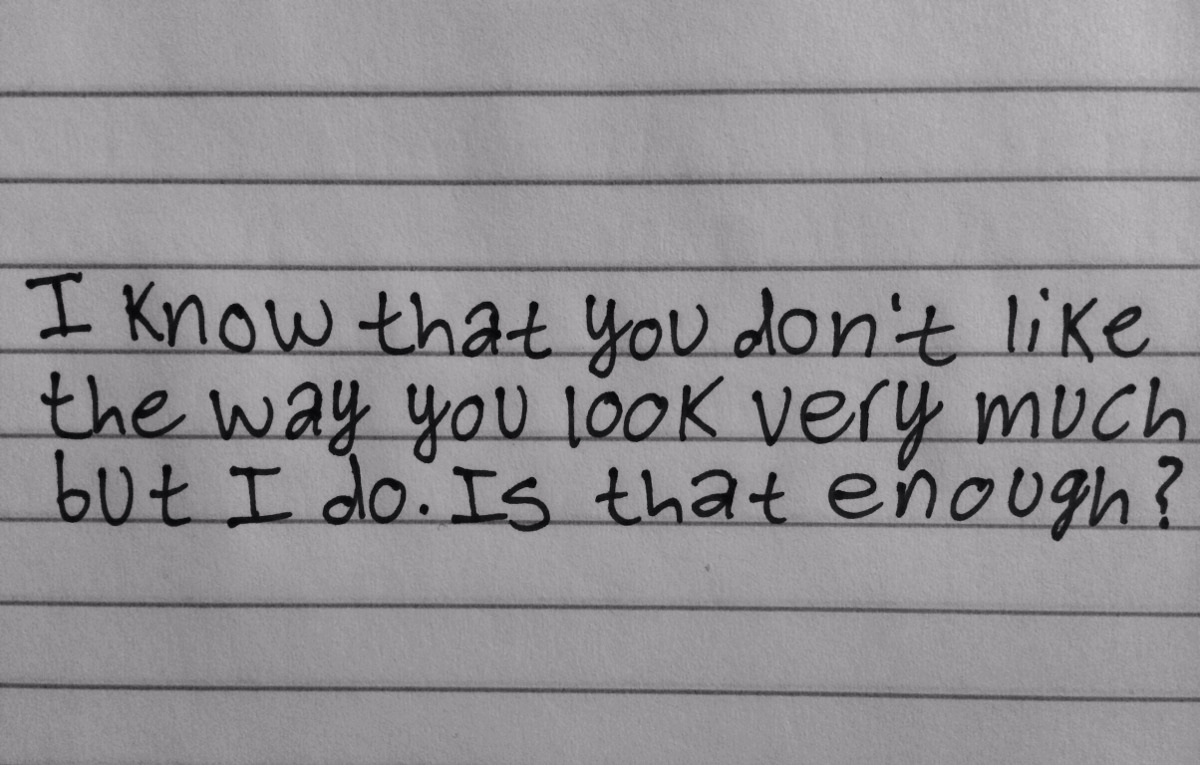 I know that you don't like
the way you look very much
but I do. Is that enough?